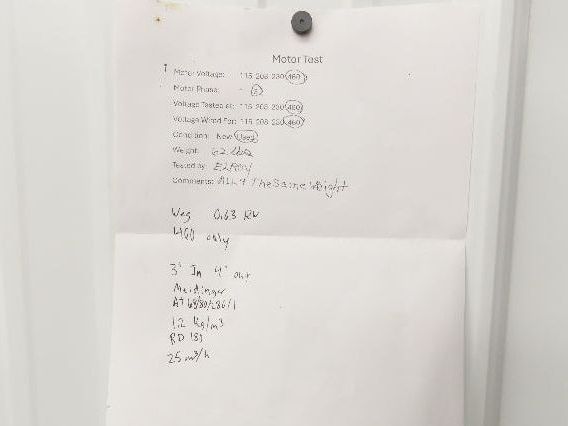 Motor Test
Motor Voltage: 115 208 230 460
Motor Phase: 3
Voltage Tested at: 115 208 230 460
Voltage Wired For: 115 208 230 460
Condition: New Used
Weight: 62 Lbs
Tested by:
Comments: All 4 The Same Weight
Weg 0.63 KW
460 only
3" In 4" out
Meidinger
1.2 Kg/m3
25 m3/h